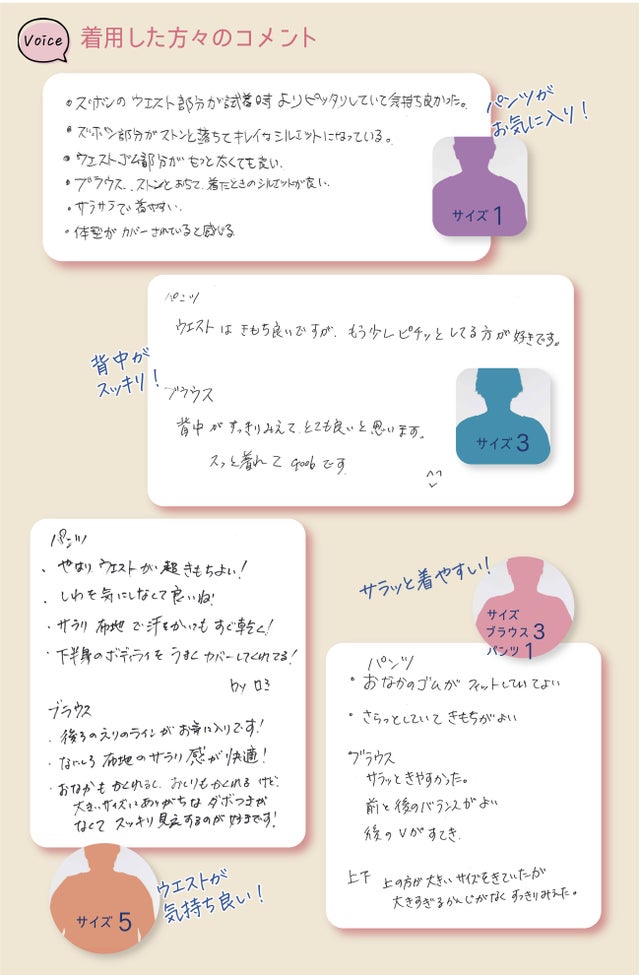 Voice 着用した方々のコメント
・ズボンのウエスト部分が試着時よりピッタリしていて気持ち良かった。
・ズボン部分がストンと落ちてキレイなシルエットになっている。
・ウエストゴム部分がもっと太くても良い。
・ブラウス、ストンとおちて、着たときのシルエットが良い。
・サラサラで着やすい。
・体型がカバーされていると感じる
パンツが
お気に入り!
サイズ 1
パンツ
ウエストは きもち良いですが、もう少しピチッとしてる方が好きです。
背中が
スッキリ!
ブラウス
背中がすっきりみえて、とても良いと思います。
スッと着れて goodです
^^
サイズ 3
パンツ
・やはりウエストが超きもちよい!
・しわを気にしなくて良いね!
・サラリ布地で汗をかいてもすぐ乾く!
・下半身のボディライをうまくカバーしてくれてる!
by
ブラウス
・後ろのえりのラインがお気に入りです!
・なにしろ布地のサラリ感が快適!
・おなかもかくれるし、おしりもかくれるけど、
大きいサイズにありがちなダボつきが
なくてスッキリ見えするのが好きです!
サイズ 5
ウエストが
気持ち良い!
サラッと着やすい!
サイズ
ブラウス 3
パンツ 1
パンツ
・おなかのゴムがフィットしていてよい
・さらっとしていてきもちがよい
ブラウス
サラッときやすかった。
前と後のバランスがよい
後のVがすてき
上下 上の方が大きいサイズをきていたが
大きすぎるかんじがなくすっきりみえた。